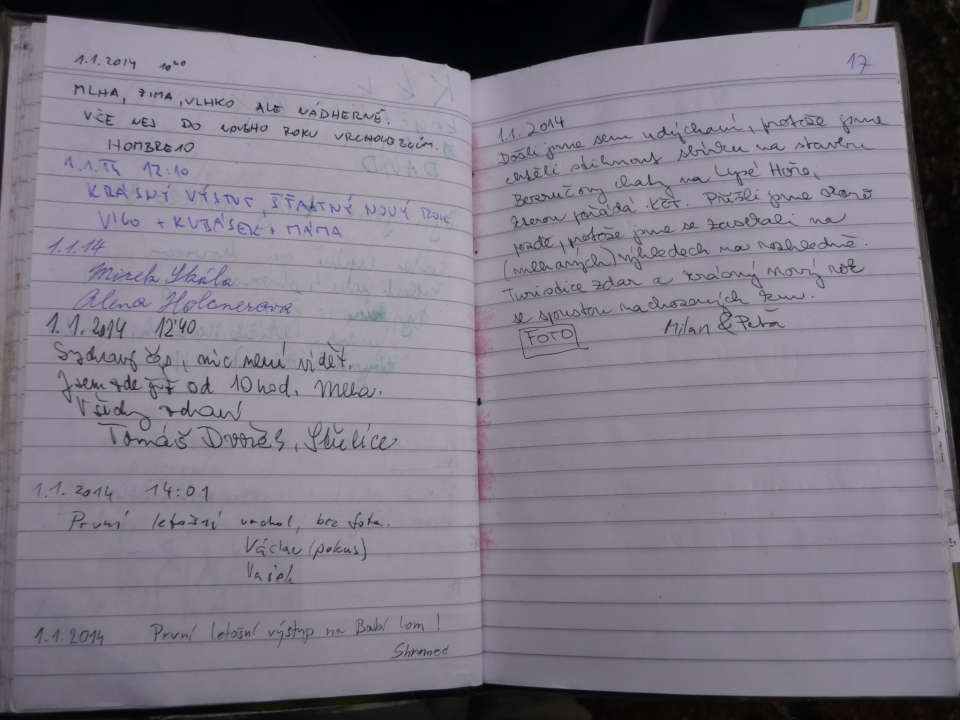 1.1.2014 10⁴⁰
MLHA, ZIMA, VLHKO ALE NÁDHERNĚ.
VŠE NEJ DO NOVÉHO ROKU VRCHOLOVÝM.
HOMBRE10
1.1.14 12:10
KRÁSNÝ VÝSTUP, ŠŤASTNÝ NOVÝ ROK
VIGO + KUBÁSEK + MÁMA
1.1.14
Mirek Skála
Alena Holcnerová
1.1.2014 12'40
nic není vidět.
Jsem zde již od 10 hod. Mlha.
Všichny zdraví
Tomáš Dvořák, Střelice
1.1.2014 14:01
První letošní vrchol, bez fota.
Václav (pokus)
Vašek
1.1.2014 První letošní výstup na Babí lom!
Shromed
17
1.1.2014
Došli jsme sem udýchaní, protože jsme
chtěli stihnout sbírku na stavbu
Bezručovy chaty na Lysé Hoře,
kterou pořádá KČT. Přišli jsme skoro
pozdě, protože jsme se zasekali na
(mlhavých) výhledech na rozhledně.
Turistice zdar a zdravý nový rok
se spoustou nachozených km.
FOTO Milan & Peťa